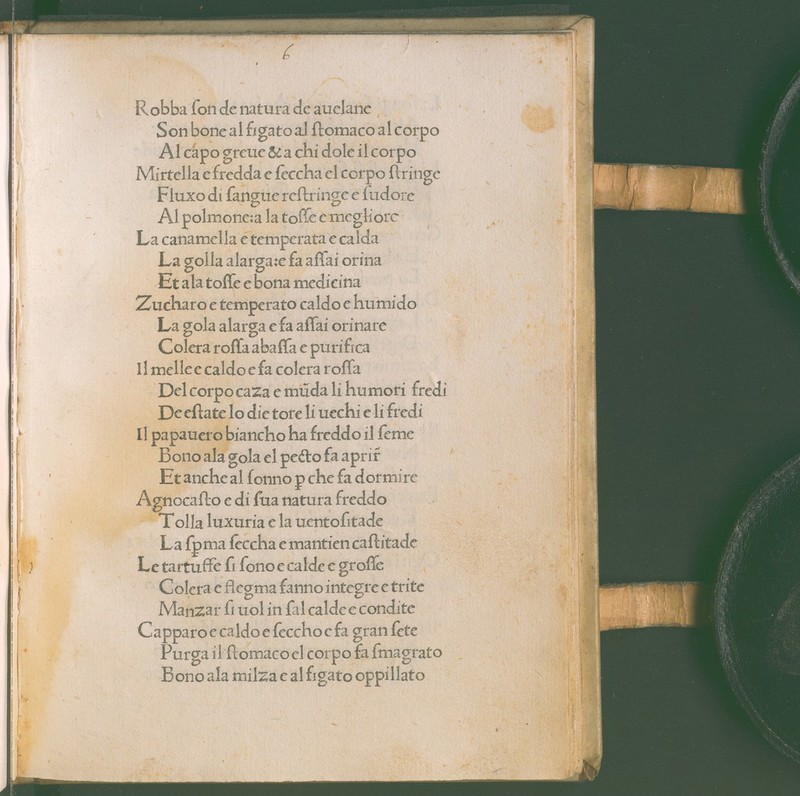 6
Robba ſon de natura de auelane
Son bone al figato al ſtomaco al corpo
Al capo greue & a chi dole il corpo
Mirtella e fredda e ſeccha el corpo ſtringe
Fluxo di ſangue reſtringe e ſudore
Al polmone:a la toſſe e megliore
La canamella e temperata e calda
La golla alarga:e fa aſſai orina
Et ala toſſe e bona medicina
Zucharo e temperato caldo e humido
La gola alarga e fa aſſai orinare
Colera roſſa abaſſa e purifica
Il melle e caldo e fa colera roſſa
Del corpo caza e mũda li humori fredi
De eſtate lo die tore li uechi e li fredi
Il papauero biancho ha freddo il ſeme
Bono ala gola el pecto fa aprir̃
Et anche al ſonno ꝑ che fa dormire
Agnocaſto e di ſua natura freddo
Tolla luxuria e la uentoſitade
La ſꝑma ſeccha e mantien caſtitade
Le tartuffe ſi ſono e calde e groſſe
Colera e flegma fanno integre e trite
Manzar ſi uol in ſal calde e condite
Capparo e caldo e ſeccho e fa gran ſete
Purga il ſtomaco el corpo fa ſmagrato
Bono ala milza e al figato oppillato